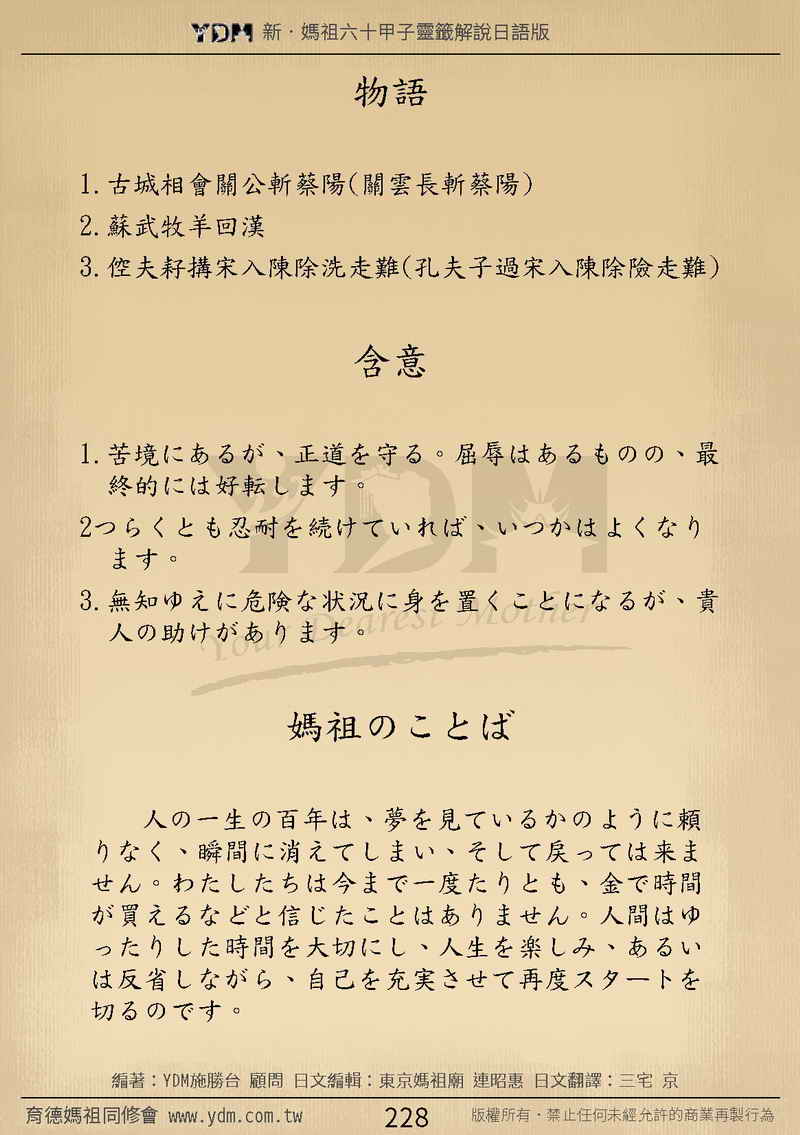 YDM 新・媽祖六十甲子靈籤解說日語版
物語
1.古城相會關公斬蔡陽(關雲長斬蔡陽)
2.蘇武牧羊回漢
3.倥夫籽搆宋入陳除洗走難(孔夫子過宋入陳除險走難)
含意
1.苦境にあるが、正道を守る。屈辱はあるものの、最
終的には好転します。
2つらくとも忍耐を続けていれば、いつかはよくなり
ます。
3.無知ゆえに危険な状況に身を置くことになるが、貴
人の助けがあります。
YDM
Your Dearest Mother
媽祖のことば
人の一生の百年は、夢を見ているかのように頼
りなく、瞬間に消えてしまい、そして戻っては来ま
せん。わたしたちは今まで一度たりとも、金で時間
が買えるなどと信じたことはありません。人間はゆ
ったりした時間を大切にし、人生を楽しみ、あるい
は反省しながら、自己を充実させて再度スタートを
切るのです。
編著：YDM施勝台 顧問 日文編輯：東京媽祖廟 連昭惠 日文翻譯：三宅 京
育德媽祖同修會 www.ydm.com.tw 228 版權所有・禁止任何未經允許的商業再製行為